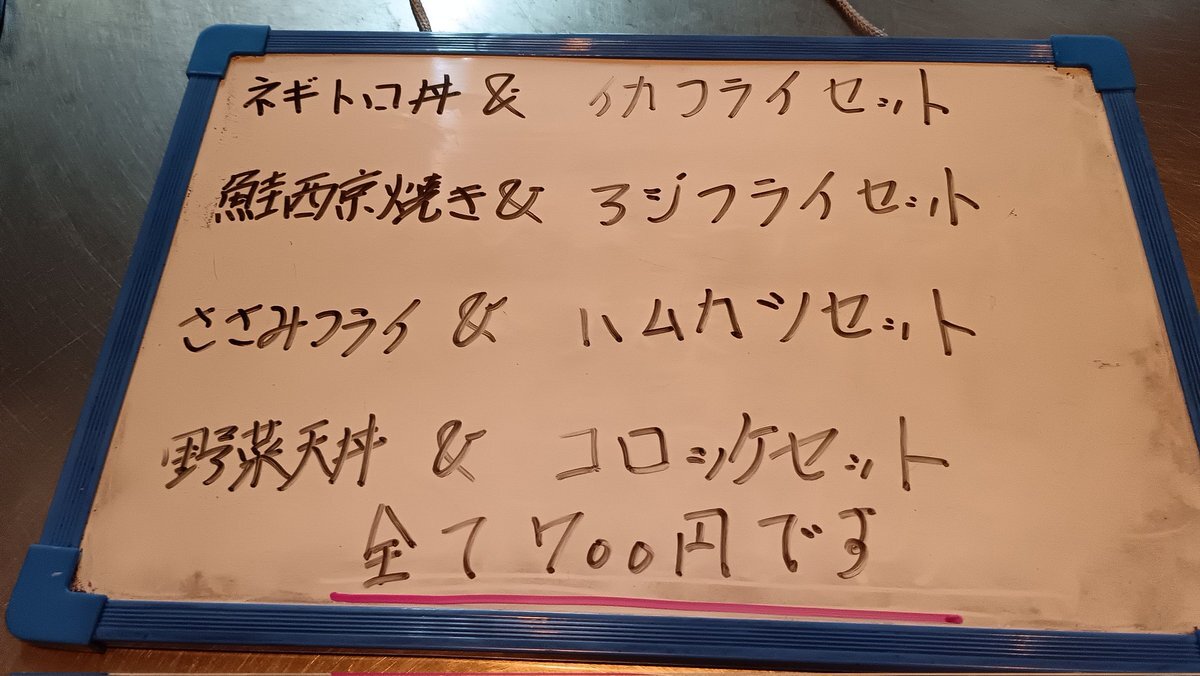 ネギトロ丼 & イカフライセット
鮭西京焼き & アジフライセット
ささみフライ & ハムカツセット
野菜天丼 & コロッケセット
全て700円です